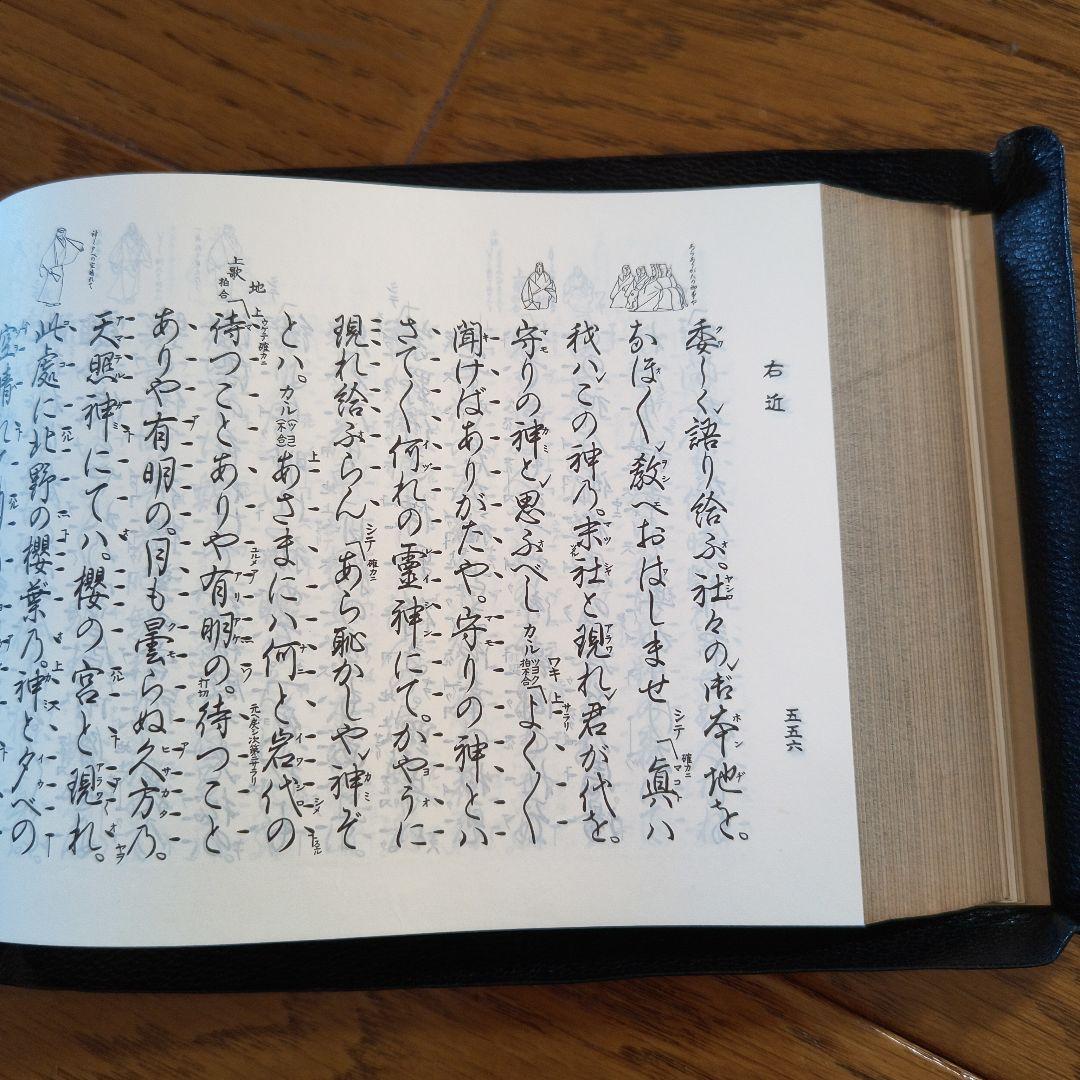 右近
五五六
委しく語り給ふ。社々の御本地を。
なほ〱教へおはしませ シテ「眞ハ
我ハこの神乃。末社と現れ君が代を。
守りの神と思ふべし カルワキ「よく〱
聞けばありがたや。守りの神とハ
さて〱何れの靈神にて。かやうに
現れ給ふらん シテ「あら恥かしや神ぞ
とハ。カルあさまにハ何と岩代の
上歌 地 拍合
待つことありや有明の。待つこと
ありや有明の。月も曇らぬ久方乃。
天照神にてハ。櫻の宮と現れ。
此處に北野の櫻葉乃。神と夕べの
空晴れて